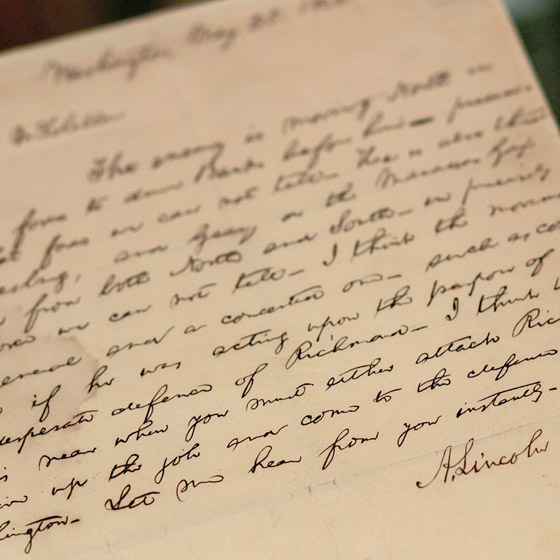 Washington, May 25. 18
The enemy is moving North in
force to drive Banks before him — precisely
force we can not tell — He is also
and Geary on the Manassas Gap
from both North and South — in precisely
we can not tell — I think the
and a concerted one — such as
if he was acting upon the purpose of
desperate defence of Richmond — I think
near when you must either attack Ric
up the job and come to the defence
ington — Let me hear from you instantly —
A. Lincoln